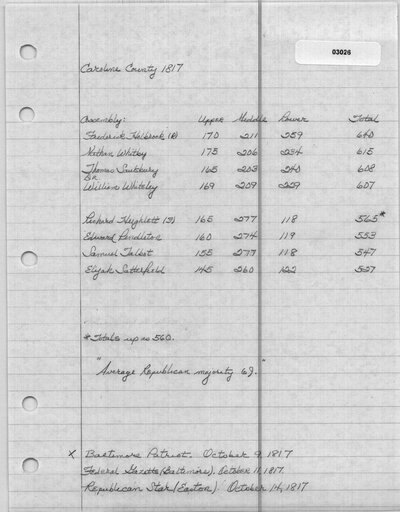 03026
Caroline County 1817
Assembly: Upper Middle Lower Total
Frederick Holbrook (R) 170 211 259 640
Nathan Whitby 175 206 234 615
Thomas Saulsbury 165 203 240 608
William Whiteley 169 209 229 607
Richard Hughlett (F) 165 277 118 565*
Edward Pendleton 160 274 119 553
Samuel Talbot 155 277 118 547
Elijah Satterfield 145 260 122 527
*Totals up as 560.
"Average Republican majority 69."
x Baltimore Patriot. October 9, 1817
Federal Gazette (Baltimore). October 11, 1817.
Republican Star (Easton). October 14, 1817